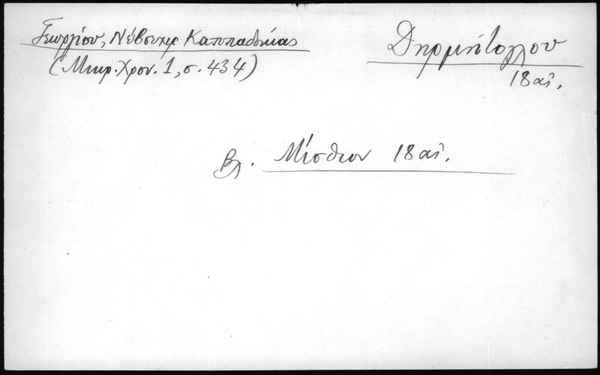 Γεωργίου, Νέβσεχιρ Καππαδοκίας
(Μικρ. Χρον. 1, σ. 434)
Δηρμήτογλου
18 αἰ.
Βλ. Μίσθιον 18 αἰ.